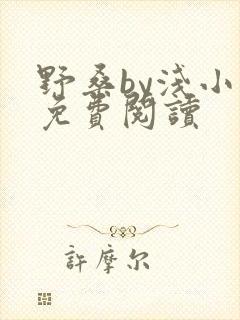 野桑by浅小
免費閱讀
許摩尔